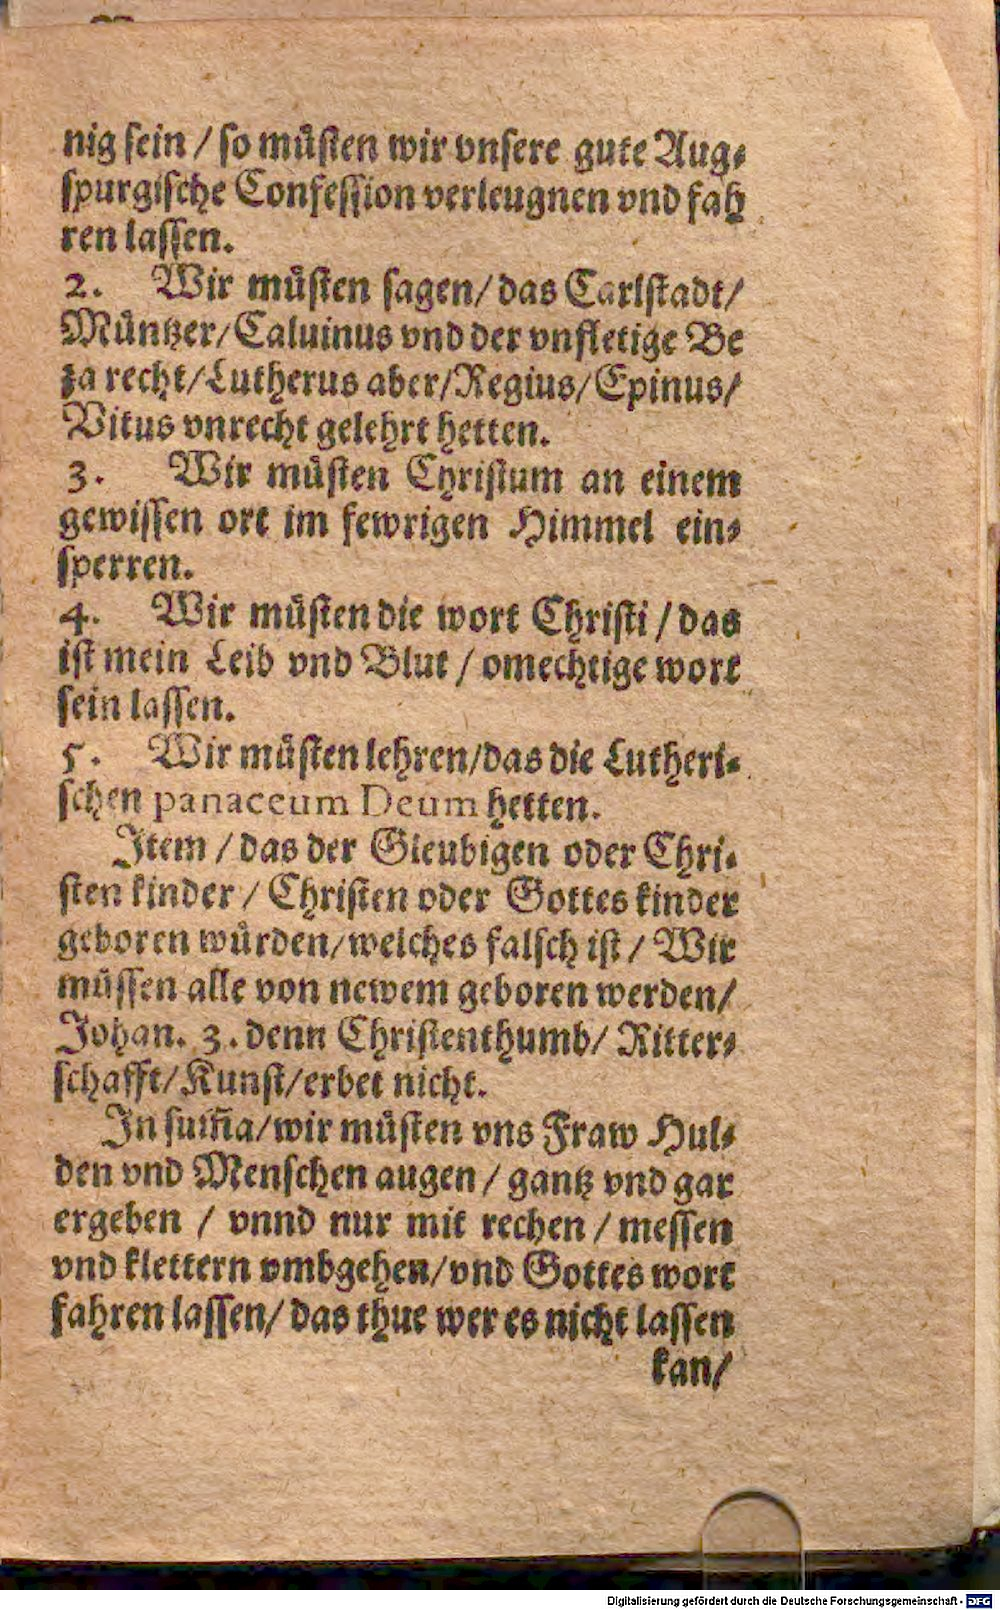 nig sein / so müsten wir vnsere gute Aug⸗
spurgische Confession verleugnen vnd fah
ren lassen.
2. Wir müsten sagen/ das Carlstadt/
Müntzer/ Caluinus vnd der vnfletige Be
za recht/ Lutherus aber/ Regius/ Epinus/
Vitus vnrecht gelehrt hetten.
3. Wir müsten Christum an einem
gewissen ort im fewrigen Himmel ein⸗
sperren.
4. Wir müsten die wort Christi / das
ist mein Leib vnd Blut / omechtige wort
sein lassen.
5. Wir müsten lehren/ das die Lutheri⸗
schen panaceum Deum hetten.
Item / das der Gleubigen oder Chri⸗
sten kinder / Christen oder Gottes kinder
geboren würden/ welches falsch ist / Wir
müssen alle von newem geboren werden/
Johan. 3. denn Christenthumb/ Ritter⸗
schafft/ Kunst/ erbet nicht.
In sum̃a/ wir müsten vns Fraw Hul⸗
den vnd Menschen augen / gantz vnd gar
ergeben / vnnd nur mit rechen / messen
vnd klettern vmbgehen/ vnd Gottes wort
fahren lassen/ das thue wer es nicht lassen
kan/
Digitalisierung gefördert durch die Deutsche Forschungsgemeinschaft - DFG